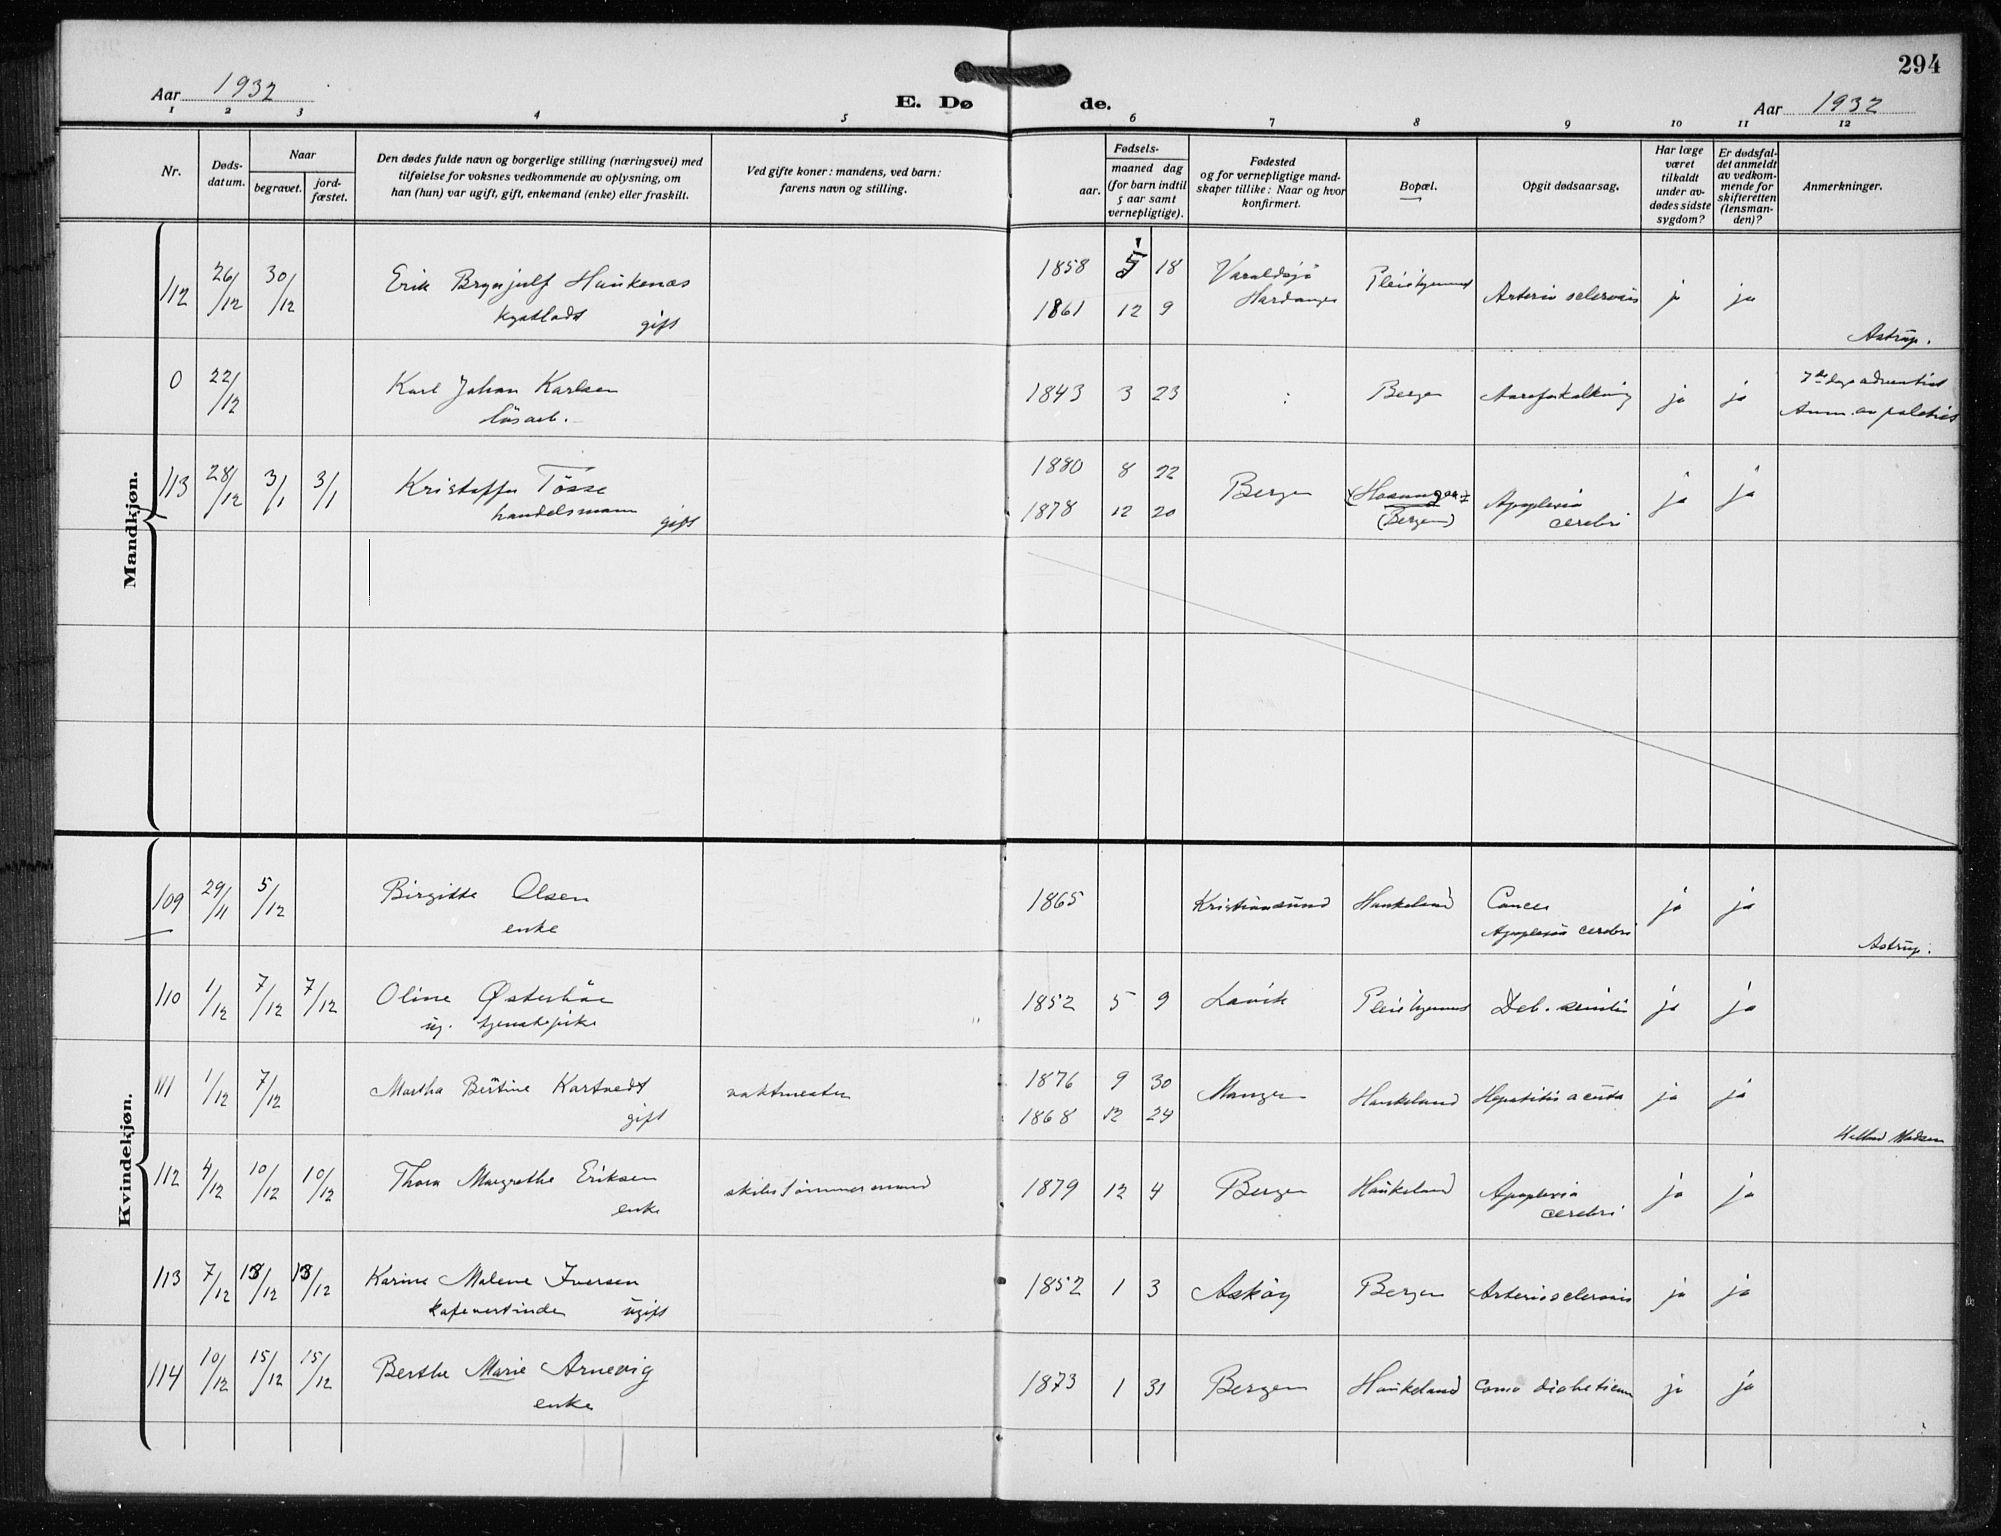 294
Aar 1932
E. Dø de.
Aar 1932
1 2 3 4 5 6 7 8 9 10 11 12
Nr.
Døds-
datum.
Naar
begravet.
jord-
fæstet.
Den dødes fulde navn og borgerlige stilling (næringsvei) med
tilføielse for voksnes vedkommende av oplysning, om
han (hun) var ugift, gift, enkemand (enke) eller fraskilt.
Ved gifte koner: mandens, ved barn:
farens navn og stilling.
Fødsels-
aar.
maaned dag
(for barn indtil
5 aar samt
vernepligtige).
Fødested
og for vernepligtige mand-
skaper tillike: Naar og hvor
konfirmert.
Bopæl.
Opgit dødsaarsag.
Har læge
været
tilkaldt
under av-
dødes sidste
sygdom?
Er dødsfal-
det anmeldt
av vedkom-
mende for
skifteretten
(lensman-
den)?
Anmerkninger.
Mandkjøn.
112 26/12 30/12 Erik Brynjulf Haukenæs 1858 18 Varaldsö Pleiehjemmet
gift 1861 12 9 Hardanger Arterio sclerosis ja ja
Astrup.
0 22/12 Karl Johan Karlsen 1843 3 23 Bergen Aareforkalkning ja ja
lösarb.
113 28/12 3/1 3/1 Kristoffer Tösse 1880 8 22 Bergen Apoplexia ja ja
handelsmann gift 1878 12 20 (Bergen) cerebri
Kvindekjøn.
109 29/11 5/12 Birgitte Olsen 1865 Kristiansund Haukeland Cancer ja ja
enke Apoplexia cerebri
Astrup.
110 1/12 7/12 7/12 Oline Østerbö 1852 5 9 Lavik Pleiehjemmet Deb. senilis ja ja
ug. tjenestepike
111 1/12 7/12 Martha Bertine Kartvedt vaktmester 1876 9 30 Manger Haukeland Hepatitis acuta ja ja
gift 1868 12 24
Madsen
112 4/12 10/12 10/12 Thora Margrethe Eriksen skibstömmermand 1879 12 4 Bergen Haukeland Apoplexia ja ja
enke cerebri
113 7/12 13/12 13/12 Karine Malene Iversen 1852 1 3 Asköy Bergen Arteriosclerosis ja ja
kafevertinde ugift
114 10/12 15/12 15/12 Berthe Marie Arnevig 1873 1 31 Bergen Haukeland Coma diabeticum ja ja
enke